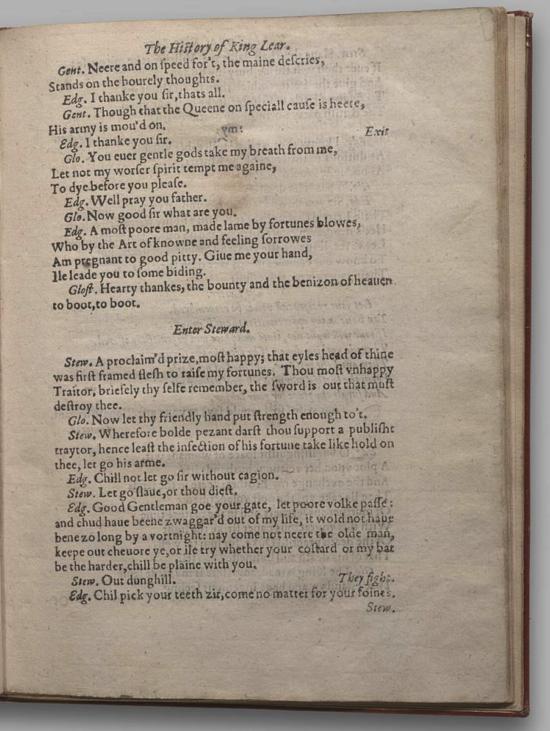 The Hiſtory of King Lear.
Gent. Neere and on ſpeed for't, the maine deſcries,
Stands on the hourely thoughts.
Edg. I thanke you ſir, thats all.
Gent. Though that the Queene on ſpeciall cauſe is heere,
His army is mou'd on.
Exit
Edg. I thanke you ſir.
Glo. You euer gentle gods take my breath from me,
Let not my worſer ſpirit tempt me againe,
To dye before you pleaſe.
Edg. Well pray you father.
Glo. Now good ſir what are you.
Edg. A moſt poore man, made lame by fortunes blowes,
Who by the Art of knowne and feeling ſorrowes
Am pregnant to good pitty. Giue me your hand,
Ile leade you to ſome biding.
Gloſt. Hearty thankes, the bounty and the benizon of heauen
to boot, to boot.
Enter Steward.
Stew. A proclaim'd prize, moſt happy; that eyles head of thine
was firſt framed fleſh to raiſe my fortunes. Thou moſt vnhappy
Traitor, briefely thy ſelfe remember, the ſword is out that muſt
deſtroy thee.
Glo. Now let thy friendly hand put ſtrength enough to't.
Stew. Wherefore bolde pezant darſt thou ſupport a publiſht
traytor, hence leaſt the infection of his fortune take like hold on
thee, let go his arme.
Edg. Chill not let go ſir without cagion.
Stew. Let go ſlaue, or thou dieſt.
Edg. Good Gentleman goe your gate, let poore volke paſſe:
and chud haue beene zwaggar'd out of my life, it wold not haue
bene zo long by a vortnight: nay come not neere the olde man,
keepe out cheuore ye, or ile try whether your coſtard or my bat
be the harder, chill be plaine with you.
Stew. Out dunghill.
They fight.
Edg. Chil pick your teeth zir, come no matter for your foines.
Stew.